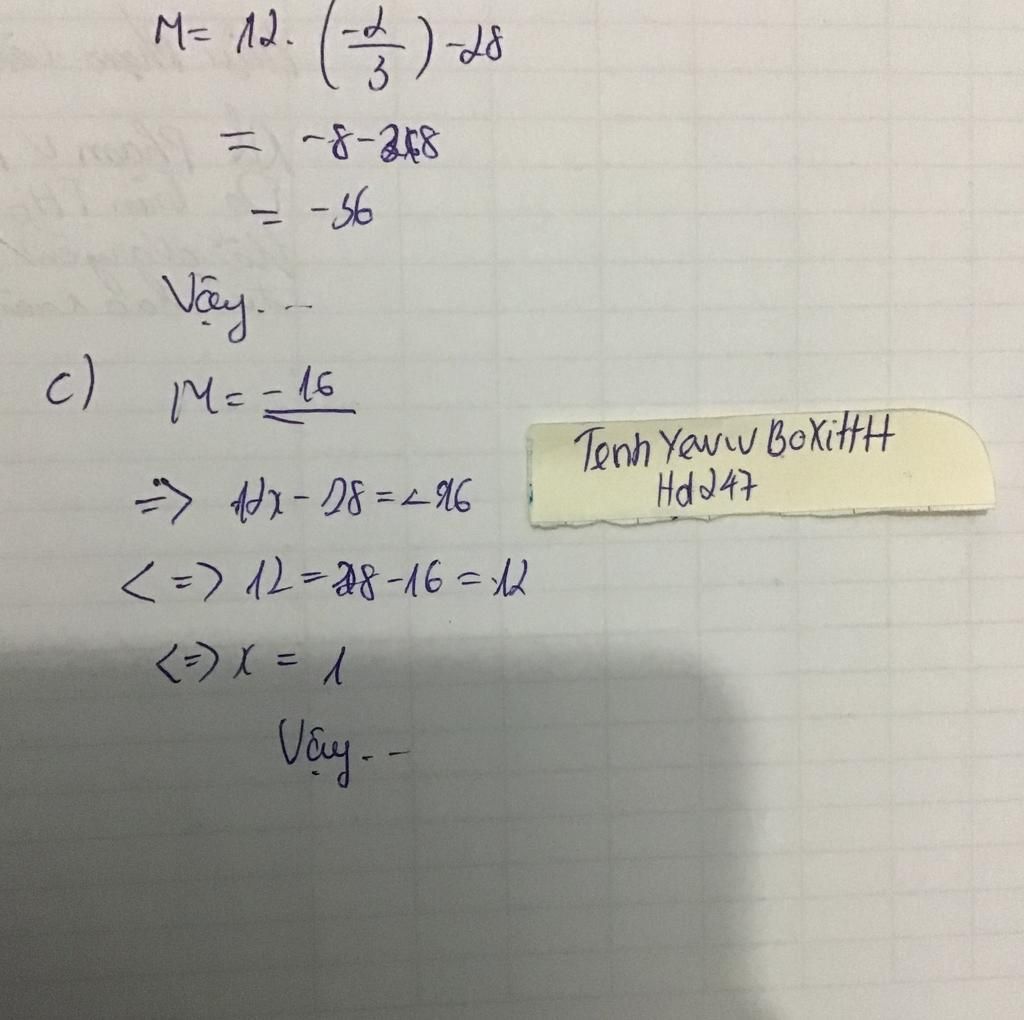 M = 12. (-2/3) -28
= -8-28
= -36
Vậy. --
c) M = -16
=> 12x - 28 = -16
<=> 12 = 28 - 16 = 12
<=> x = 1
Vậy. --
Tenh Yeww BoXiHH
Hd247